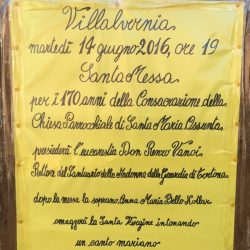 Villalvernia
martedì 14 giugno 2016, ore 19
Santa Messa
per i 170 anni della Consacrazione della
Chiesa Parrocchiale di Santa Maria Assunta,
presiederà l'eucarestia Don Renzo Vanoi
Rettore del Santuario della Madonna della Guardia di Tortona.
dopo la messa la soprano Anna Maria Bello Kottar
omaggerà la Santa Vergine intonando
un canto mariano